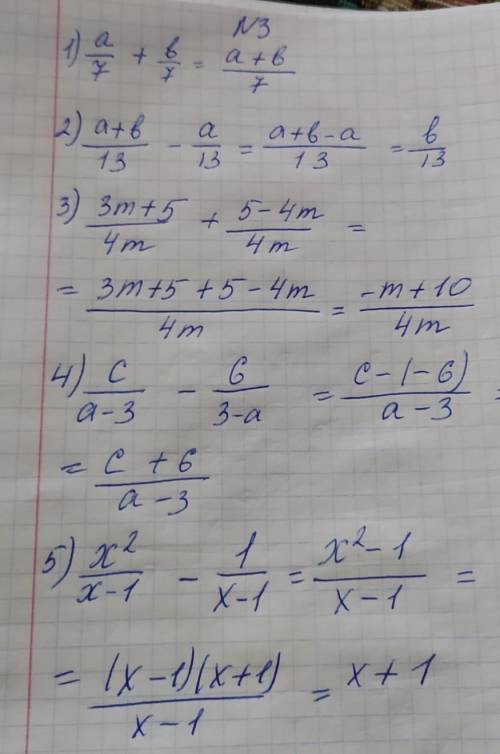 N3
1) a/7 + в/7 = (a+в)/7
2) (a+в)/13 - a/13 = (a+в-a)/13 = в/13
3) (3m+5)/4m + (5-4m)/4m =
= (3m+5+5-4m)/4m = (-m+10)/4m
4) c/(a-3) - 6/(3-a) = (c-(-6))/(a-3) =
= (c+6)/(a-3)
5) x²/(x-1) - 1/(x-1) = (x²-1)/(x-1) =
= (x-1)(x+1)/(x-1) = x+1